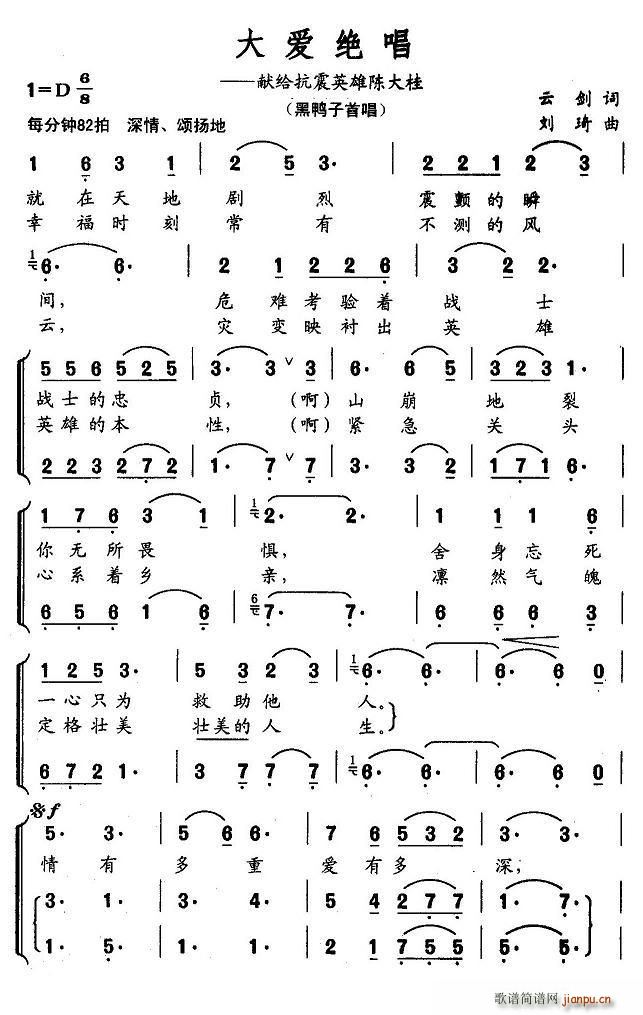 大爱绝唱
——献给抗震英雄陈大桂
(黑鸭子首唱)
1=D 6/8
云剑词
刘琦曲
每分钟82拍 深情、颂扬地
1 6 3 1 | 2 2 5 3 | 2 2 1 2 3 |
就在天地剧烈 震颤的瞬
幸福时刻常有 不测的风
6· 6· | 2 1 2 2 2 6 | 3 2 2 2 |
间, 危难考验着战士
云, 灾变映衬出英雄
5 5 6 5 2 5 | 3· 3 3 | 6· 6 6 | 3 2 3 1· |
战士的忠贞,(啊)山崩地裂
英雄的本性,(啊)紧急关头
2 2 3 2 7 2 | 1· 7 7 | 3· 3 3 | 1 7 1 6· |
1 7 6 3 1 | 2· 2· | 1 1 1 6 |
你无所畏惧, 舍身忘死
心系着乡亲, 凛然气魄
6 5 6 1 6 | 7· 7· | 6 6 6 3 |
1 2 5 3· | 5 3 2 3 | 6· 6· | 6· 6 0 |
一心只为救助他人。
定格壮美壮美的人生。
6 7 2 1· | 3 7 7 7 | 6· 6· | 6· 6 0 |
f
5· 3· | 5 6 6 | 7 6 5 3 2 | 3· 3· |
情有多重爱有多深,
3· 1· | 3 4 4 | 5 4 2 7 7 | 1· 7· |
1· 5· | 1 2 2 | 2 1 7 5 5 | 5· 5· |
歌谱简谱网
jianpu.cn